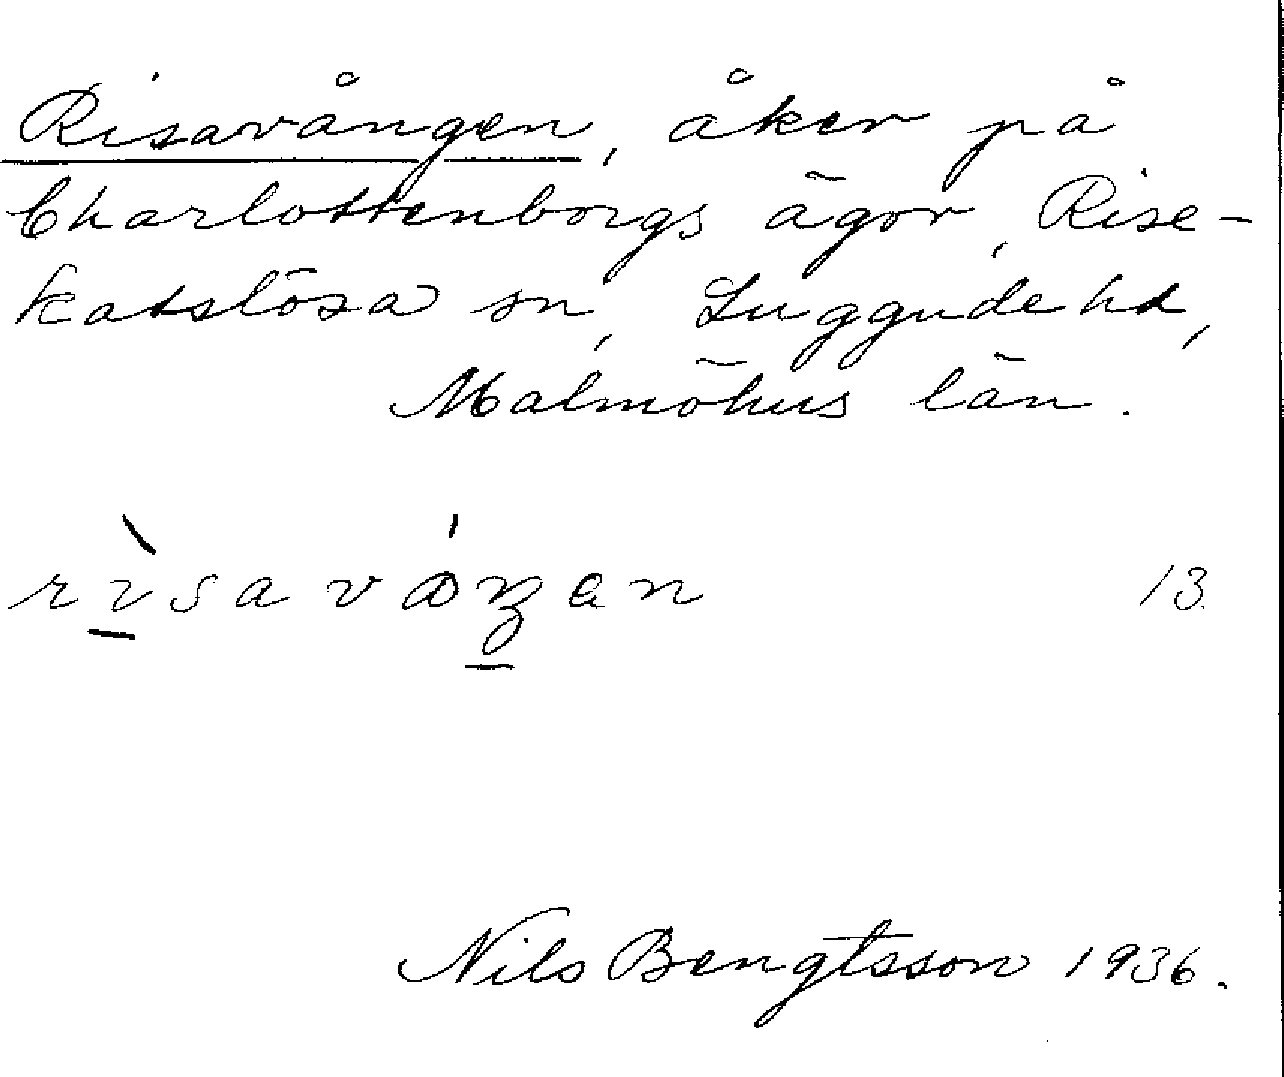 Risavången, åker på
Charlottenborgs ägor, Rise-
katslösa sn, Luggude hd,
Malmöhus län.
rìsaváŋen 13.
Nils Bengtsson 1936.